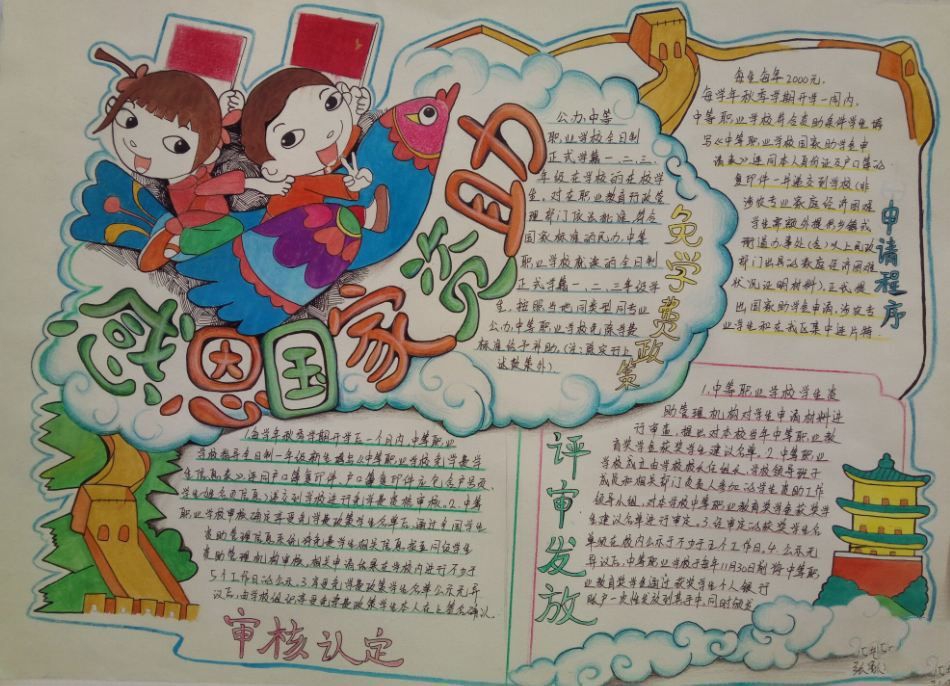 感恩国家资助
公办中等
职业学校全日制
正式学籍一、二、三
年级在学校的在校学
生。对在职业教育行政管
理部门依法批准、符合
国家标准的民办中等
职业学校就读的全日制
正式学籍一、二、三年级学
生，按照当地同类型同专业
公办中等职业学校免除学费
标准给予补助。(注：
政策外)
免学费政策
每生每年2000元。
每学年秋季学期开学一周内，
中等职业学校符合资助条件学生填
写《中等职业学校国家助学金申
请表》连同本人身份证及户口簿的
复印件一并递交到学校(非
涉农专业家庭经济困难
学生需额外提供乡镇或
街道办事处(含)以上民政
部门出具的家庭经济困难
状况证明材料)，正式提
出国家助学金申请。涉农专
业学生和在我区集中连片特
申请程序
1.每学年秋季学期开学一个月内，中等职业
学校指导全日制一年级新生填写《中等职业学校免学费学
生信息表》连同户口簿复印件(户口簿复印件应包含户主页、
学生姓名页信息)递交到学校进行免学费资格审核。2.中等
职业学校审核确定享受免学费政策学生名单后，通过全国学生
资助管理信息系统，将免学费学生相关信息报至同级学生
资助管理机构审核。相关审核结果在学校内进行不少于
5个工作日的公示。3.享受免学费政策学生名单公示无异
议后，由学校组织享受免学费政策学生本人在上签名确认
审核认定
1.中等职业学校学生资
助管理机构对学生申请材料进
行审查，提出对本校当年中等职业教
育奖学金获奖学生建议名单。2.中等职业
学校成立由学校校长任组长、学校领导班子
成员和相关部门负责人参加的学生资助工作
领导小组，对本学校中等职业教育奖学金获奖学
生建议名单进行审定。3.经审定的获奖学生名
单须在校内公示于不少于五个工作日。4.公示无
异议后，中等职业学校于每年11月30日前将中等职
业教育奖学金通过获奖学生个人银行
账户一次性发放到其手中，同时颁发
评审发放